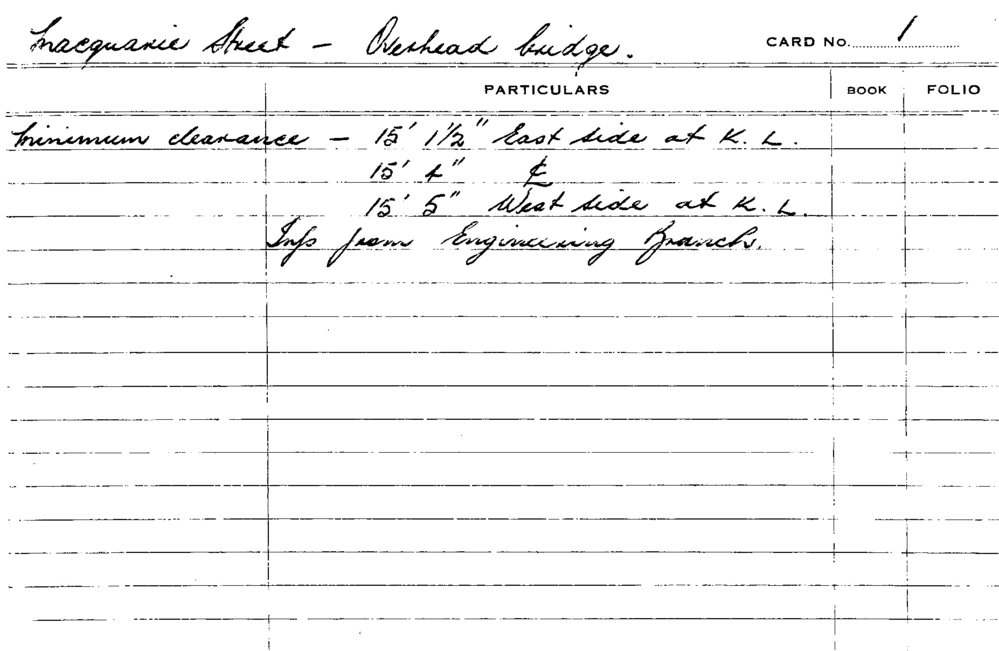 Macquarie Street – Overhead bridge.
CARD No. 1
PARTICULARS BOOK FOLIO
Minimum clearance – 15' 1½" East side at K. L.
15' 4" ℄
15' 5" West side at K. L.
Info from Engineering Branch.